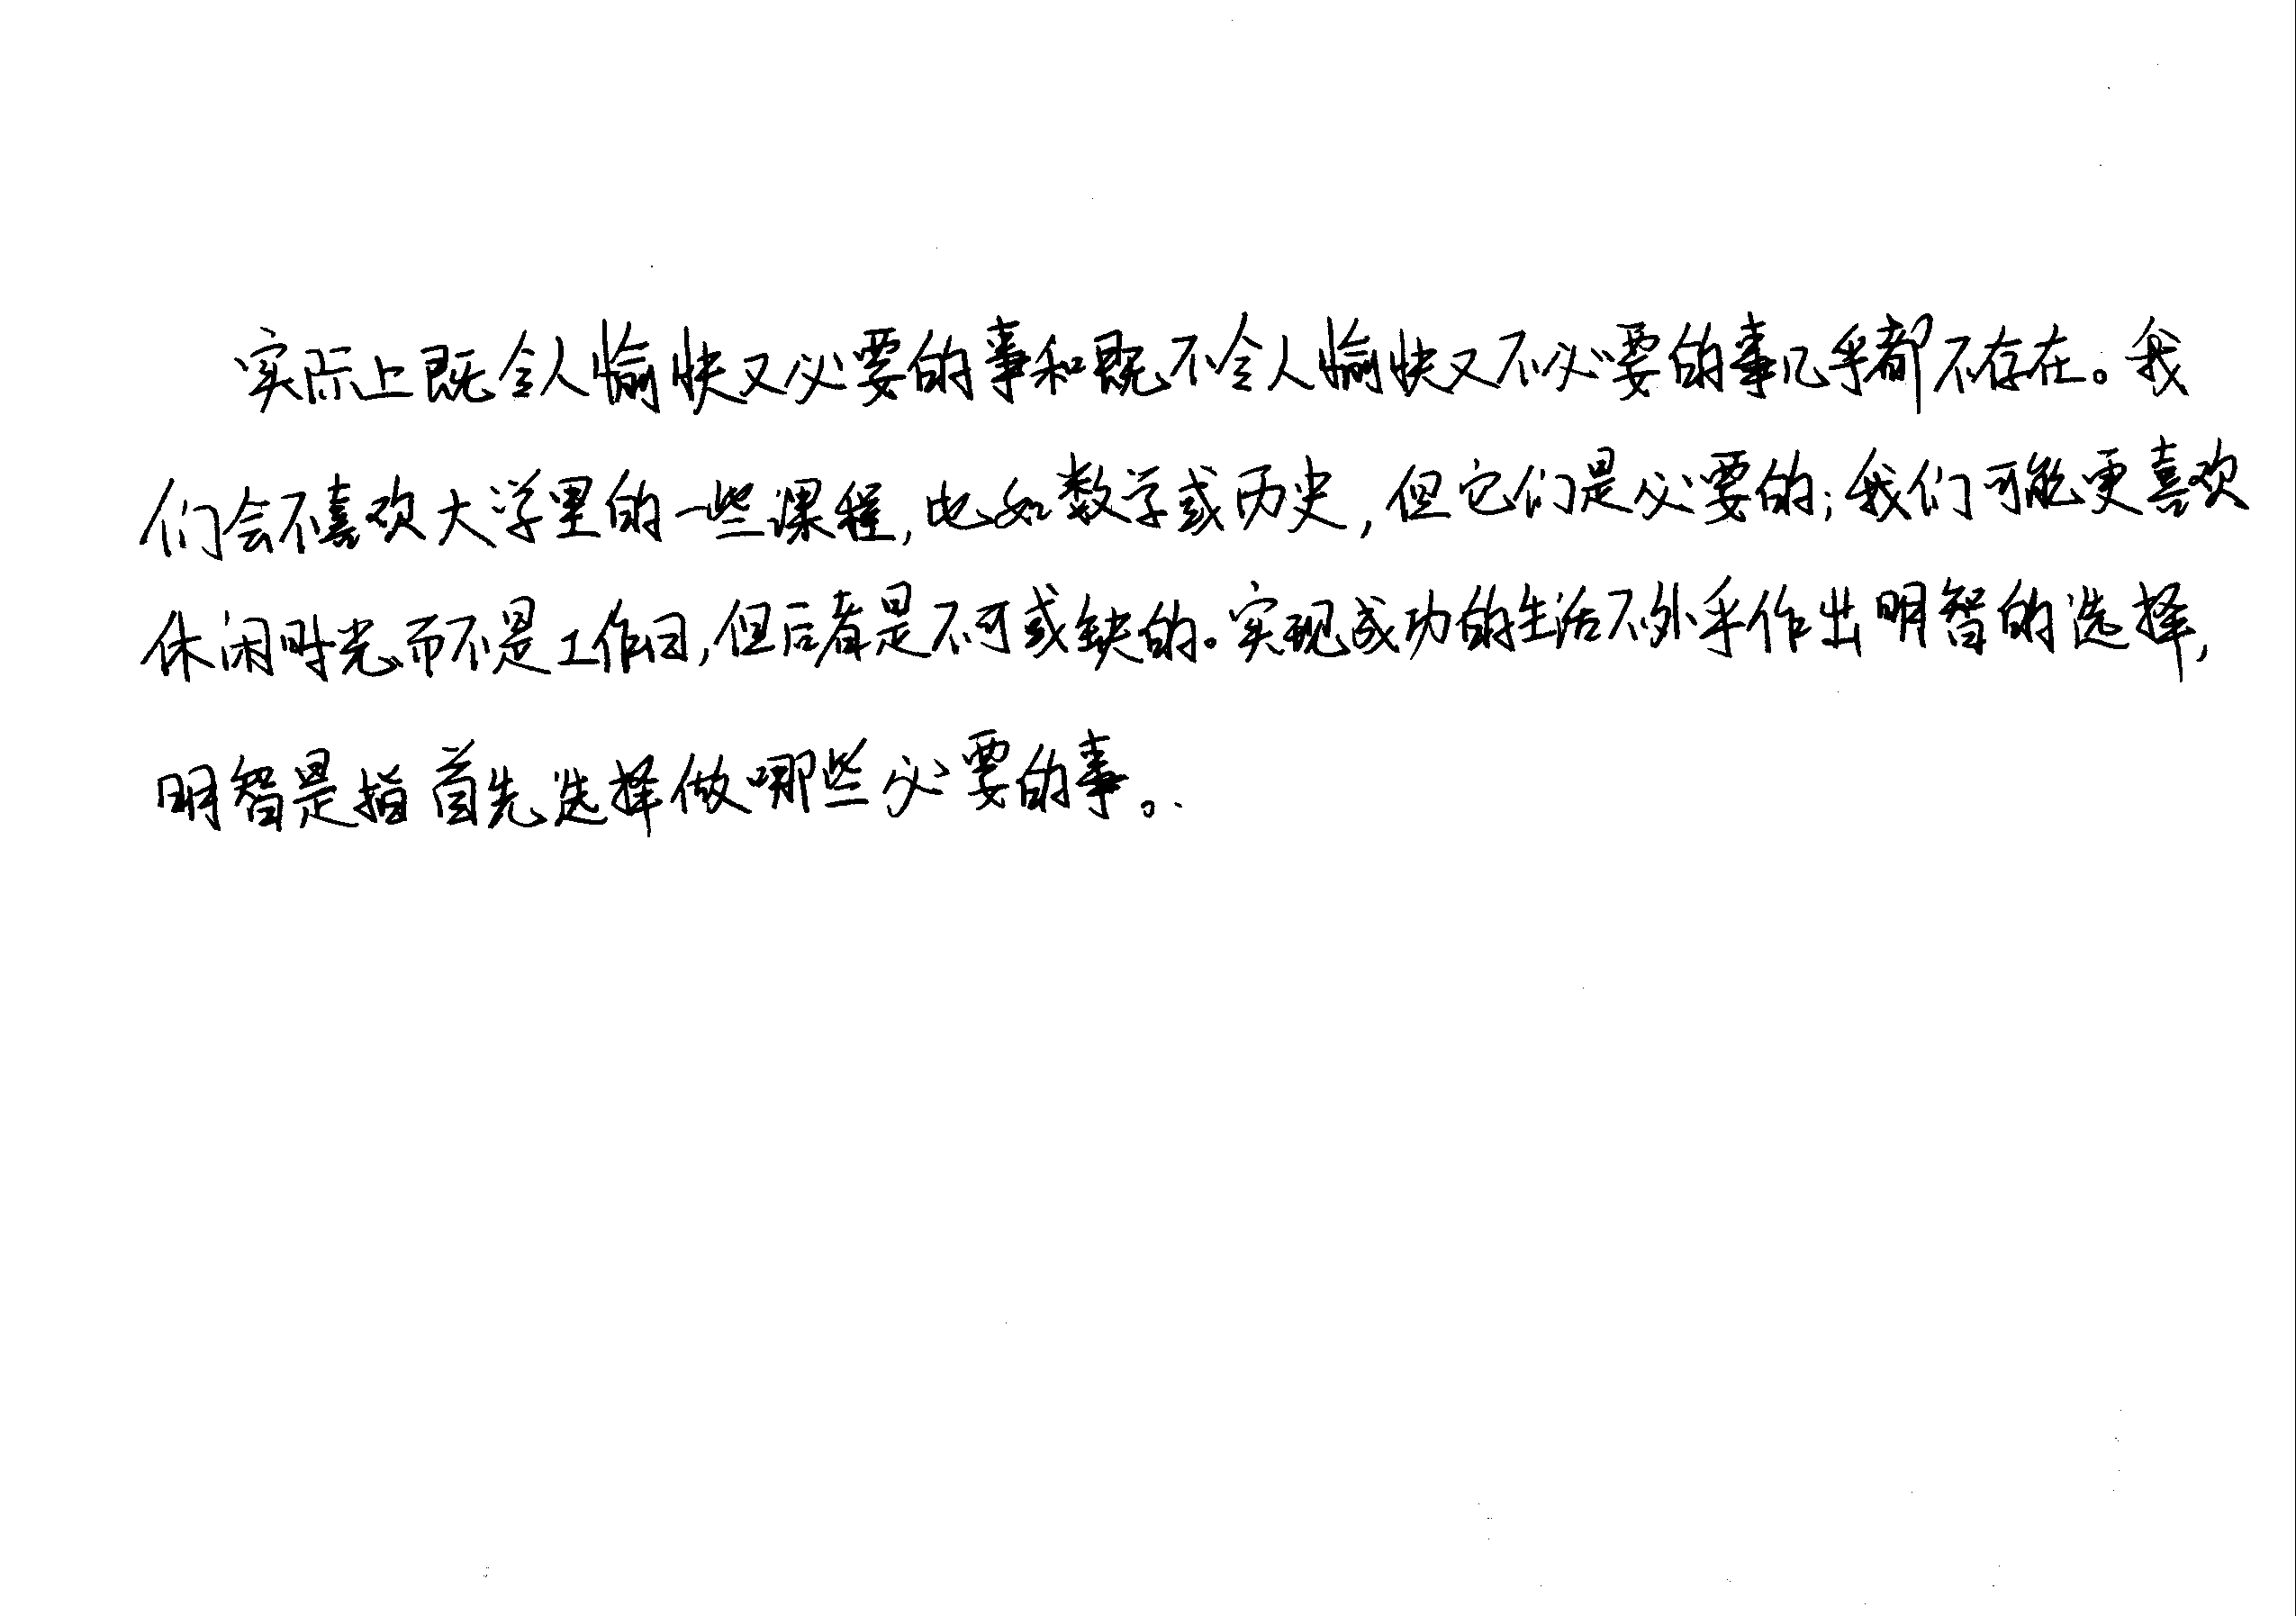 实际上既令人愉快又必要的事和既不令人愉快又不必要的事几乎都不存在。我
们会不喜欢大学里的一些课程,比如数学或历史,但它们是必要的;我们可能更喜欢
休闲时光而不是工作日,但后者是不可或缺的。实现成功的生活不外乎作出明智的选择,
明智是指首先选择做哪些必要的事。